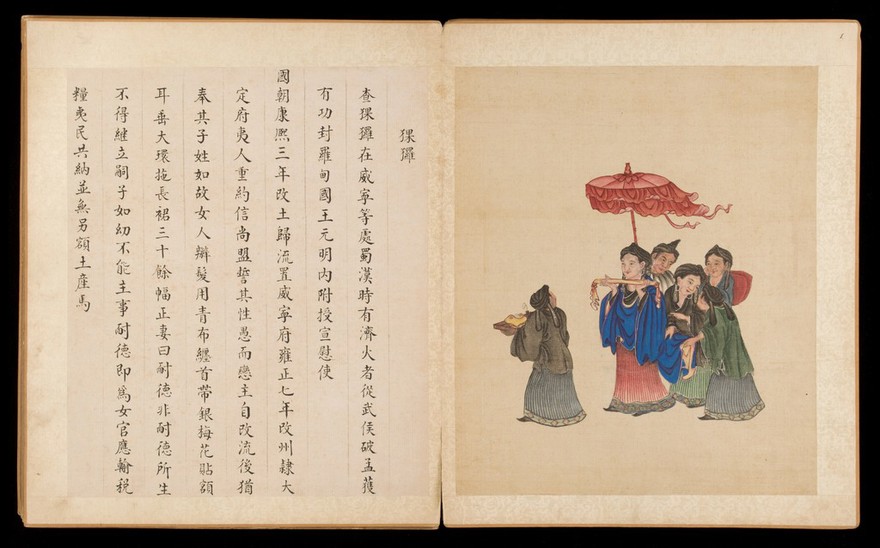 猓玀
查猓玀在威寧等處蜀漢時有濟火者從武侯破孟獲
有功封羅甸國王元明內附授宣慰使
國朝康熙三年改土歸流置威寧府雍正七年改州隸大
定府夷人重約信尚盟誓其性愚而戀主自改流後猶
奉其子姓如故女人辮髮用青布纏首帶銀梅花貼額
耳垂大環拖長裙三十餘幅正妻曰耐德非耐德所生
不得繼立嗣子如幼不能主事耐德即爲女官應輸稅
糧夷民共納並無另額土產馬
1